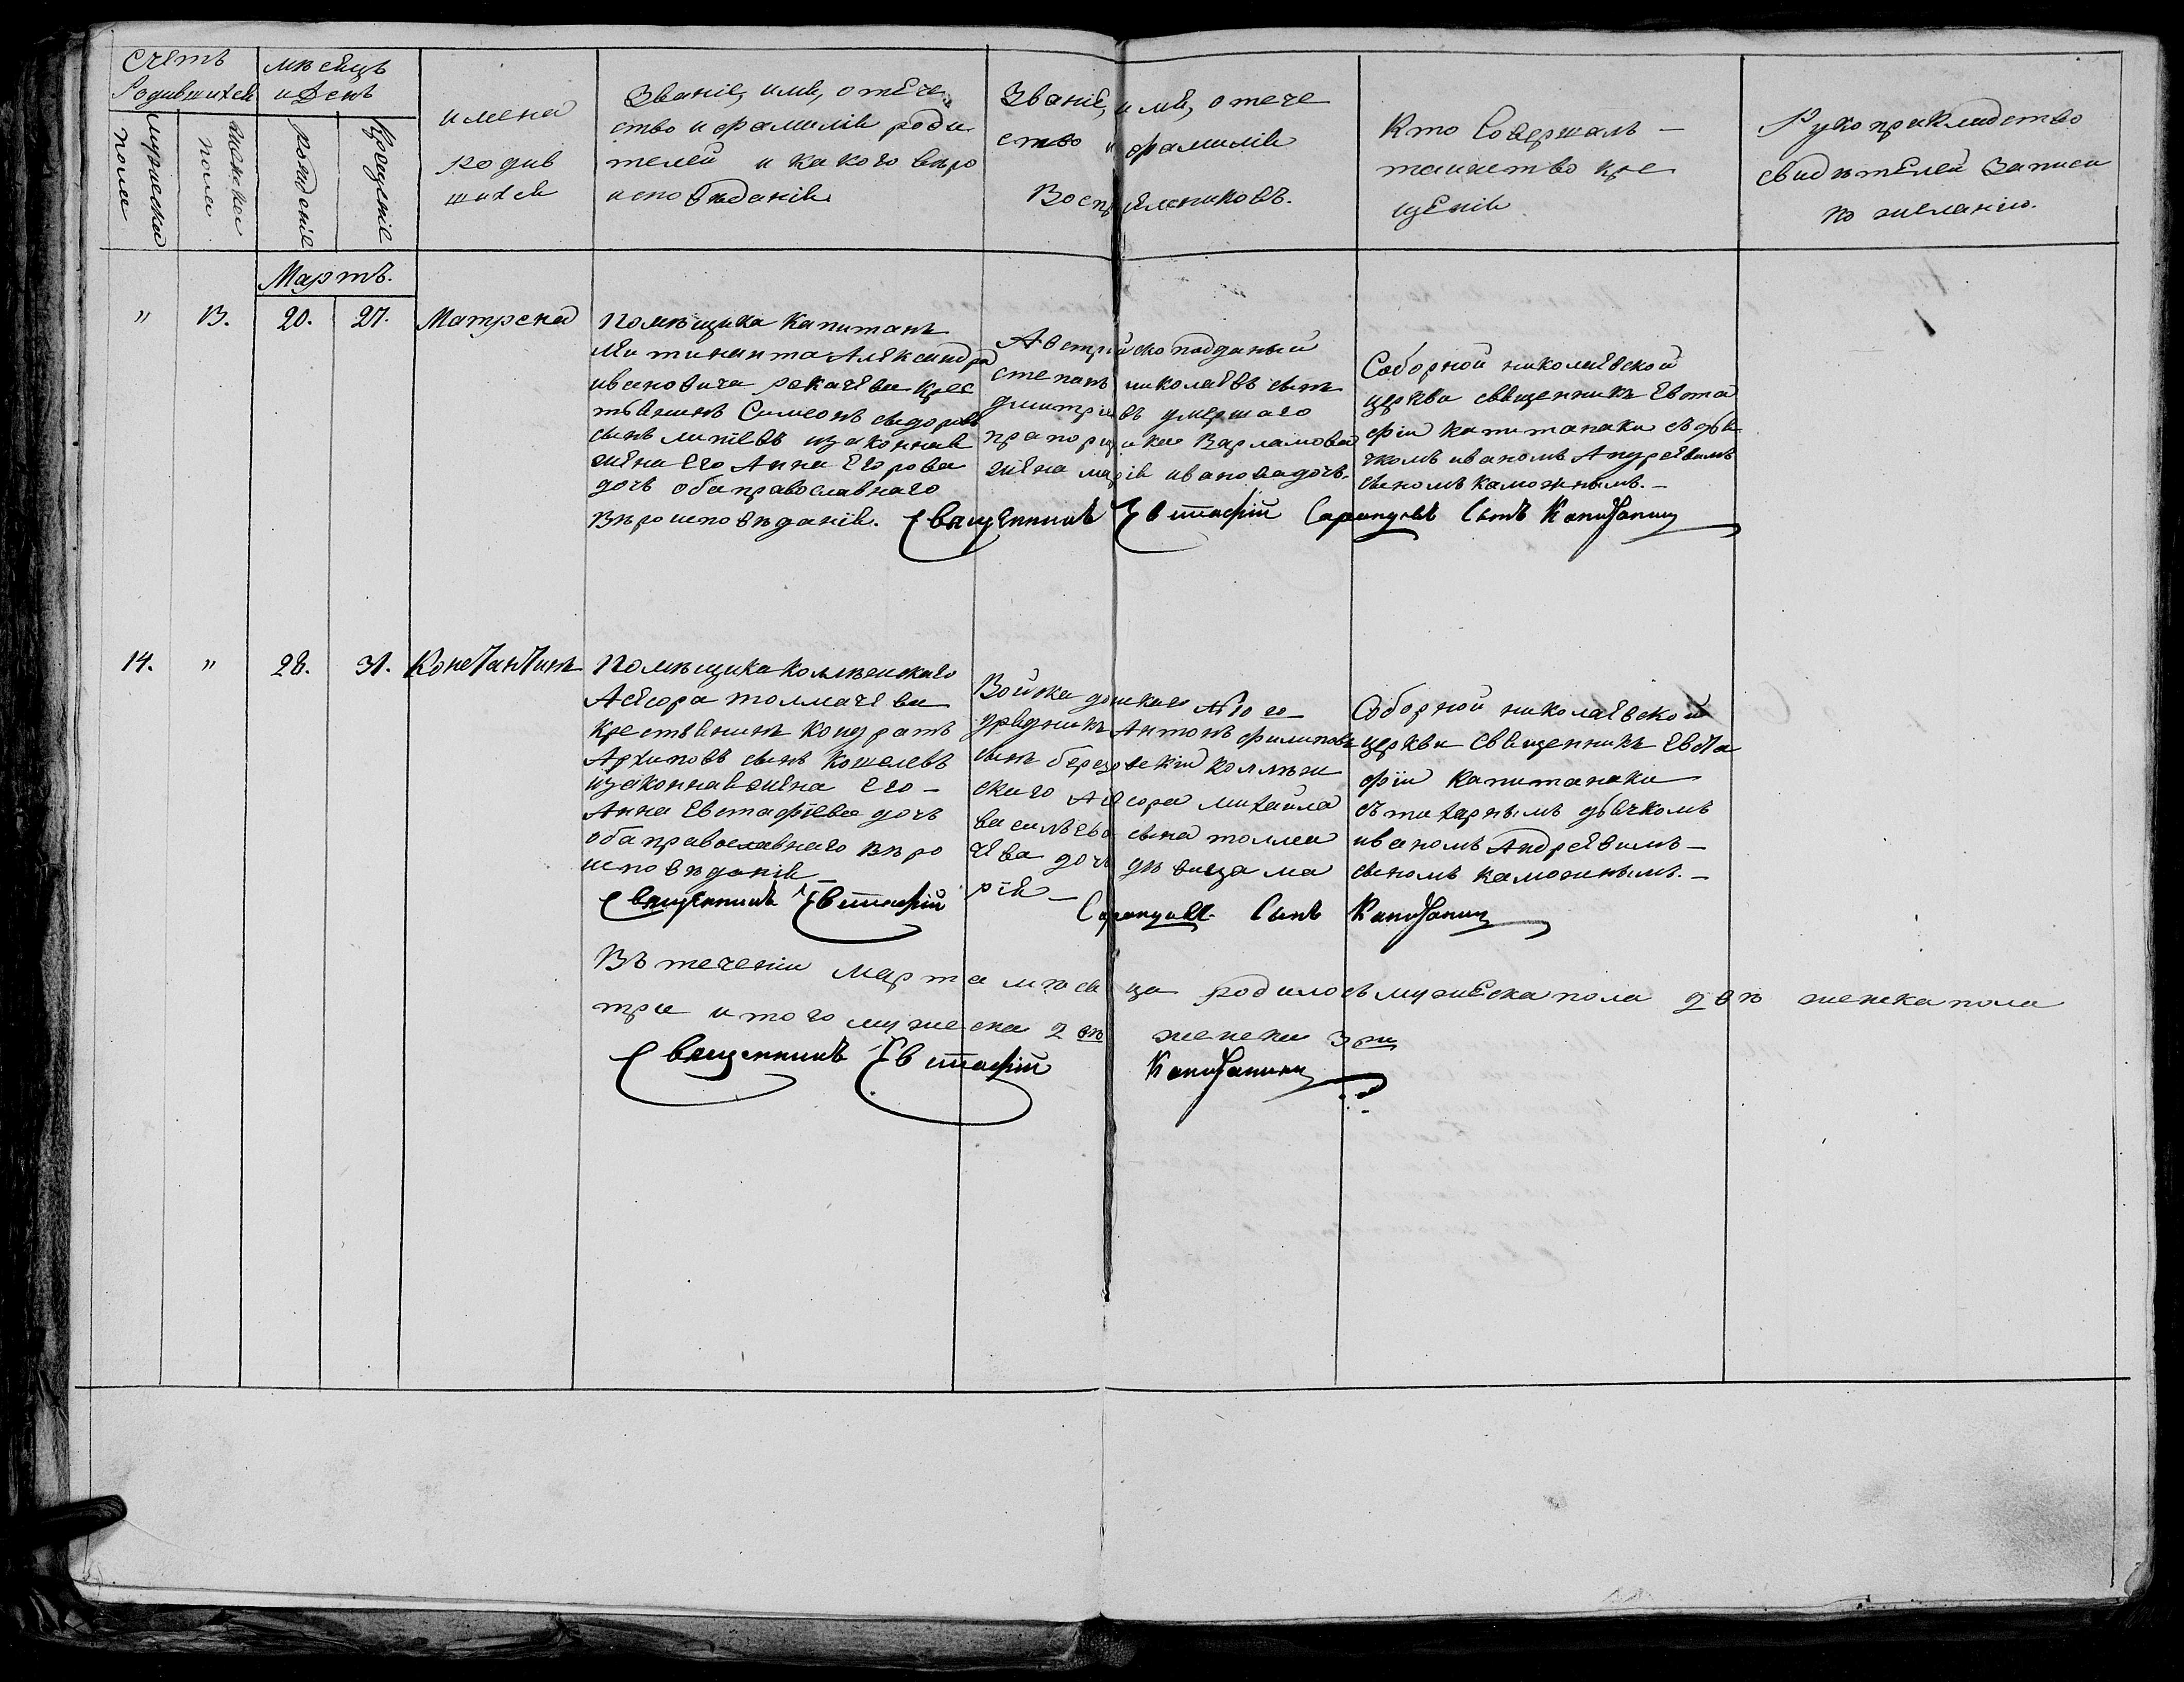 Счетъ
Родившихся
мѣсяцъ
и День
мужеска
пола
женска
пола
рожденіе
крещеніе
имена
родив
шихся
Званіе, имя, отече
ство и фамилія роди
телей и какого вѣро
исповѣданія
Званіе, имя, отече
ство и фамилія
Воспріемниковъ.
Кто Совершалъ —
таинство кре
щенія
Рукоприкладство
свидѣтелей Записи
по желанію.
Мартъ.
" 13. 20. 27. Матрена
Помѣщика Капитанъ
Лейтинанта Александра
ивановича рокачева крес
тьянинъ Симеонъ сидоровъ
сынъ изаконная
жена Его Анна Егорова
дочь оба православнаго
Вѣроисповѣданія.
Австрійско подданый
степанъ николаевъ сынъ
дмитріевъ умершаго
прапорщика Варламова
жена марія иванова дочь.
Соборной николаевской
церкви священникъ Евста
фій капитанаки съ дья
чкомъ иваномъ Андреевымъ
сыномъ каможнымъ. —
Священникъ Евстафій Сарандуевъ Сынъ Капитанаки
14. " 28. 31. Константинъ
Помѣщика коллѣжскаго
Асесора толмачева
крестьянинъ кондратъ
Архиповъ сынъ Кошелевъ
изаконная жена Его —
Анна Евстафіева дочь
оба православнаго вѣро
исповѣданія
Войска донскаго №10 го
урядникъ Антонъ филиповъ
сынъ березовскій коллѣж
скаго Асесора михайла
васильева сына толма
чева дочь дѣвица ма
рія —
Соборной николаевской
церкви священникъ Евста
фій капитанаки
съ тихарнымъ дьячкомъ
иваномъ Андреевымъ —
сыномъ каможнымъ. —
Священникъ Евстафій Сарандуевъ Сынъ Капитанаки
Въ теченіи марта мѣсяца родилось мужеска пола 2вѣ женска пола
три итого мужеска 2вѣ женска 3ри
Священникъ Евстафій Капитанаки